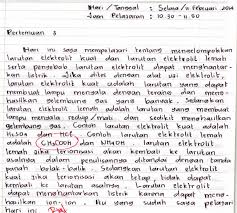 Hari / Tanggal : Selasa / 11 Februari 2014
Jam Pelajaran : 10.30 - 11.50
Pertemuan 3
Hari ini saya mempelajari tentang mengelompokkan
larutan elektrolit kuat dan larutan elektrolit lemah
serta penyebab larutan elektrolit dapat menghantar-
kan listrik. Jika dites dengan alat uji elektrolit,
larutan elektrolit kuat adalah larutan yang dapat
membuat lampu menyala dengan terang dan meng-
hasilkan gelembung gas yang banyak. Sedangkan
larutan elektrolit lemah adalah larutan yang membuat
lampu menyala redup/mati dan sedikit menghasilkan
gelembung gas. Contoh larutan elektrolit kuat adalah
H2SO4 dan HCl. Contoh larutan elektrolit lemah
adalah CH3COOH dan NH4OH. larutan elektrolit
lemah jika terionisasi akan kembali ke larutan
asalnya dalam penulisannya ditandai dengan tanda
panah bolak-balik. Sedangkan larutan elektrolit
kuat jika terionisasi akan tetap, tidak dapat
kembali ke larutan asalnya. Larutan elektrolit
dapat menghantarkan listrik karena dapat meng-
hasilkan ion-ion. Itu yang sudah saya pelajari
hari ini.